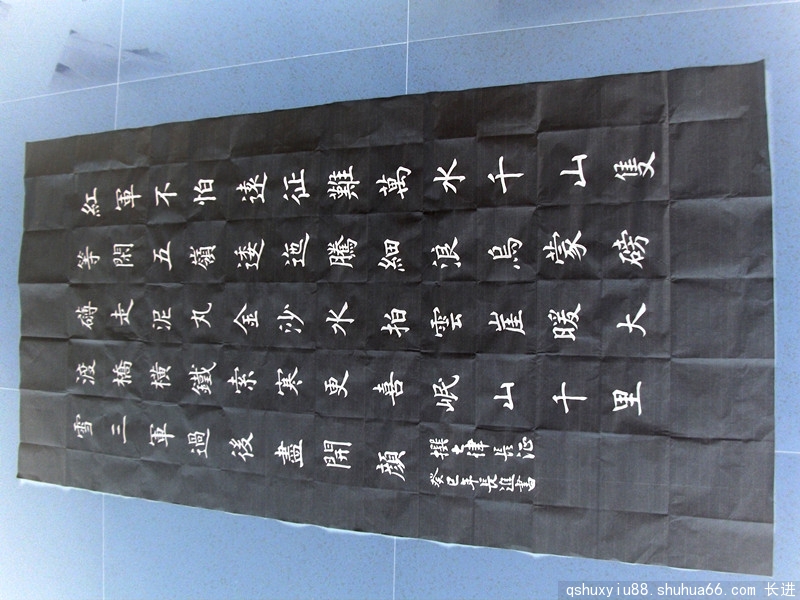 紅軍不怕遠征難萬水千山隻
等閑五嶺逶迤騰細浪烏蒙磅
礡走泥丸金沙水拍雲崖暖大
渡橋橫鐵索寒更喜岷山千里
雪三軍過後盡開顏
撰七律長征
癸巳年長進書
qshuxyiu88.shuhua66.com 长进